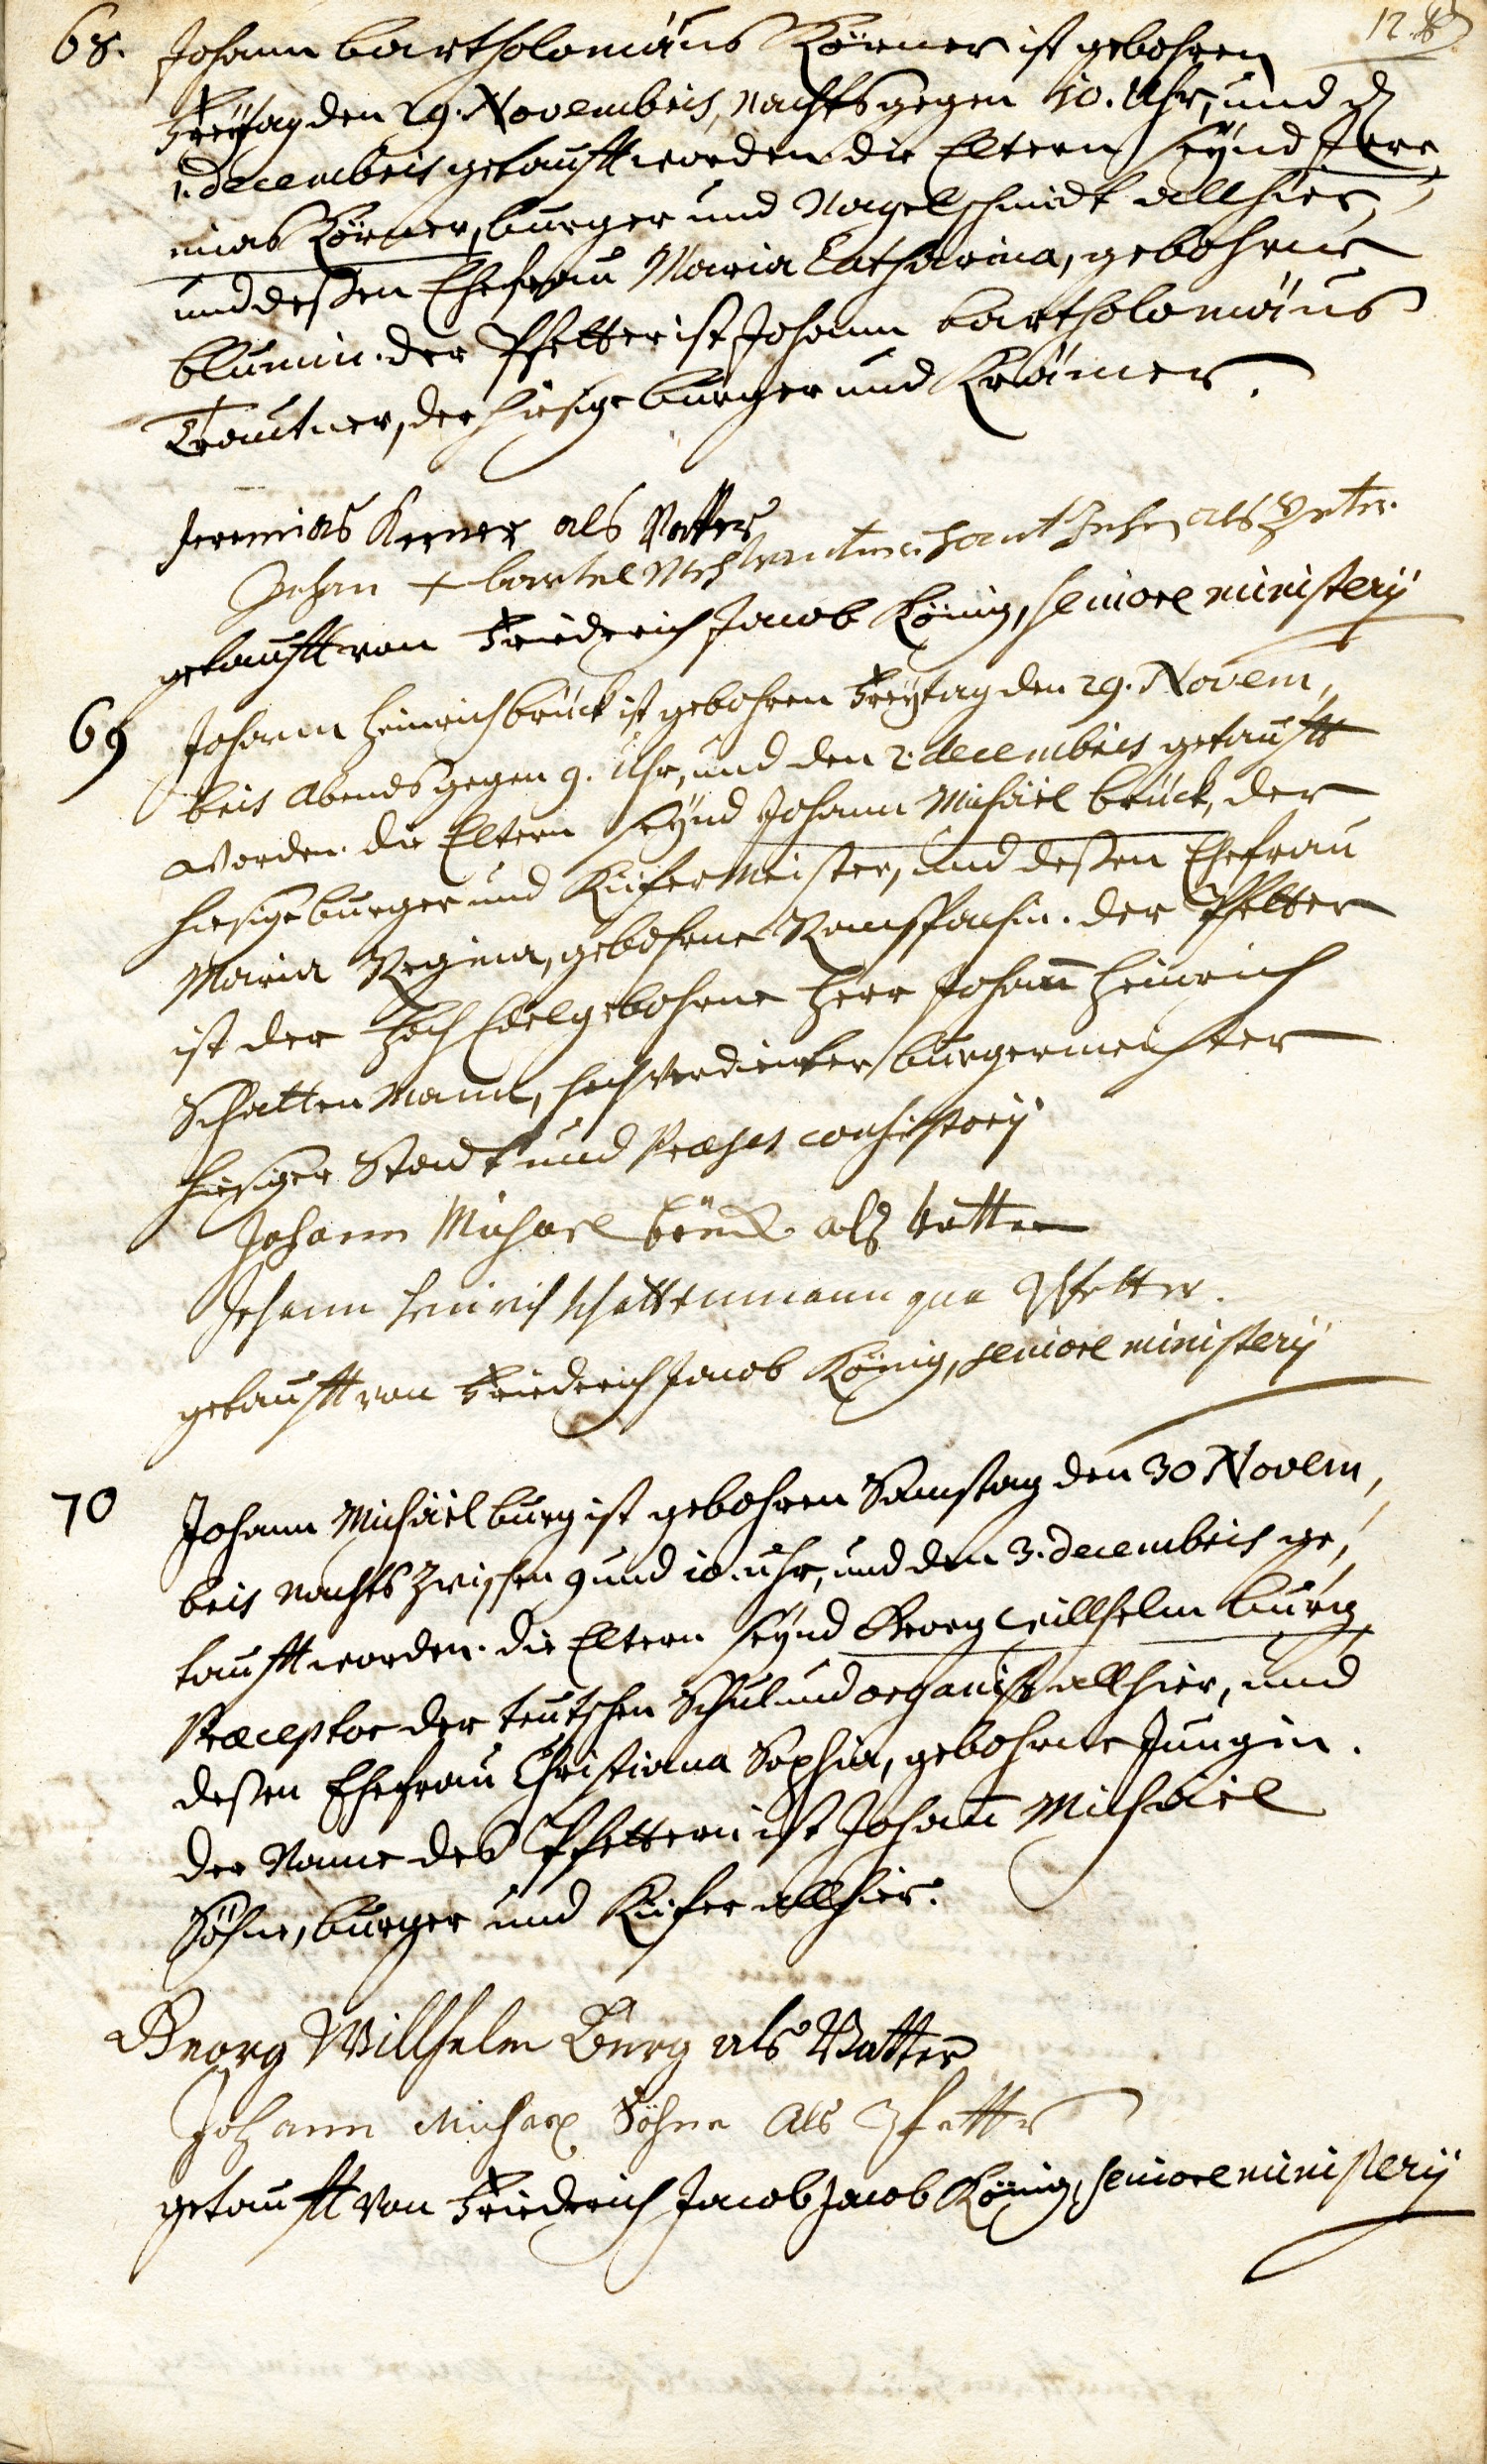 68. Johann Bartholomäus Körner ist gebohren
Freytag den 29. Novembris, nachts gegen 10. Uhr, und d.
1. Decembris getaufft worden. die Eltern seynd Jere,
mias Körner, burger und Nagelschmidt allhier,
und deßen Ehefrau Maria Catharina, gebohrne
Blumin. der Pfetter ist Johann Bartholomäus
Trautner, der hiesige burger und Krämer.
Jeremias Kerner als Vatter
Johan + bartel
getaufft von Friederich Jacob König, seniore ministerij
69 Johann Heinrich Brück ist gebohren Freytag den 29. Novem,
bris Abends gegen 9. Uhr, und den 2. decembris getaufft
worden. die Eltern seynd Johann Michäel Brück, der
hiesige burger und Kiefermeister, und deßen Ehefrau
Maria Regina, gebohrne. der Pfetter
ist der Hoch Edelgebohrne Herr Johann Heinrich
Schattenmann, hochverdienter burgermeister
hiesiger Stadt und Præses consistorij
Johann Michael Brück als Vatter
Johann Heinrich Schattenmann qua Pfetter.
getaufft von Friederich Jacob König, seniore ministerij
70 Johann Michäel Burg ist gebohren Samstag den 30 Novem,
bris nachts zwischen 9 und 10. uhr, und den 3. decembris ge,
taufft worden. die Eltern seynd Georg Willhelm Burg
Præceptor der teutschen Schul und organist allhier, und
deßen Ehefrau Christiana Sophia, gebohrne Jungin.
der Name des Pfettern ist Johann Michäel
Söhne, burger und Kiefer allhier.
Georg Willhelm Burg als Vatter
Johann Michael Söhne Als Pfetter
getaufft von Friederich Jacob Jacob König, seniore ministerij